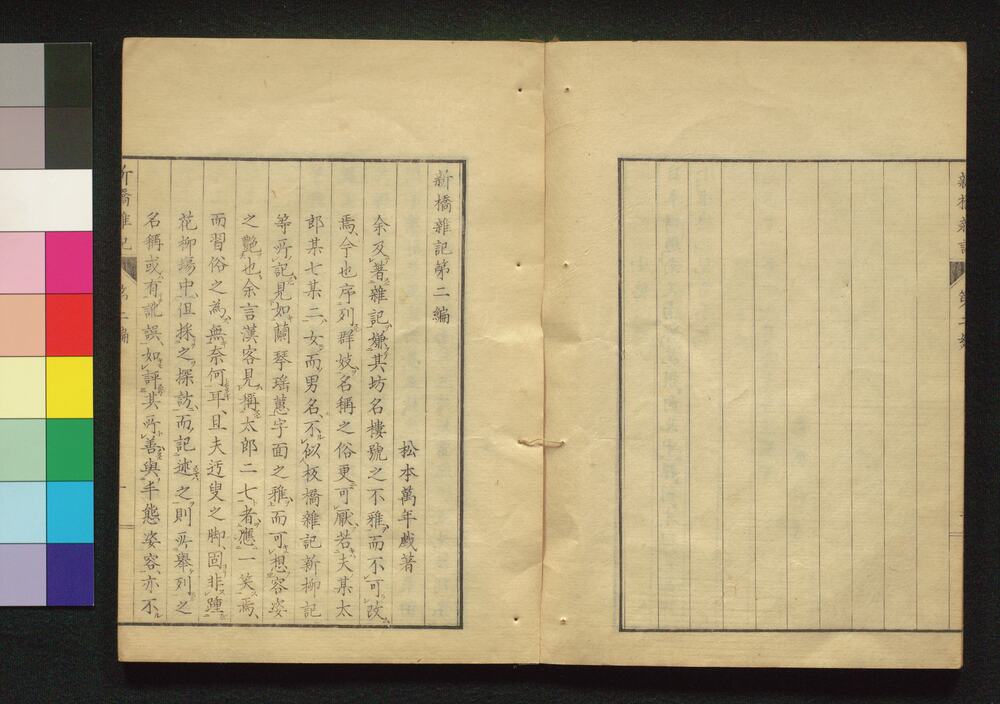 新橋雜記
新橋雜記第二編
松本萬年戲著
余反著雜記嫌其坊名樓號之不雅而不可改
焉、今也序列群妓名稱之俗更可厭若夫某太
郎某七某二、女而男名、不似板橋雜記新柳記
等所記見如蘭琴瑶蕙字面之雅而可想容姿
之艷也、余言漢客見稱太郎二七者應一笑焉、
而習俗之為無奈何耳、且夫迂叟之脚、固非踵
花柳場中但採之探訪而記述之則所舉列之
名稱或有訛誤、如評其所善與丰態姿容、亦不
新橋雜記 第二編 一